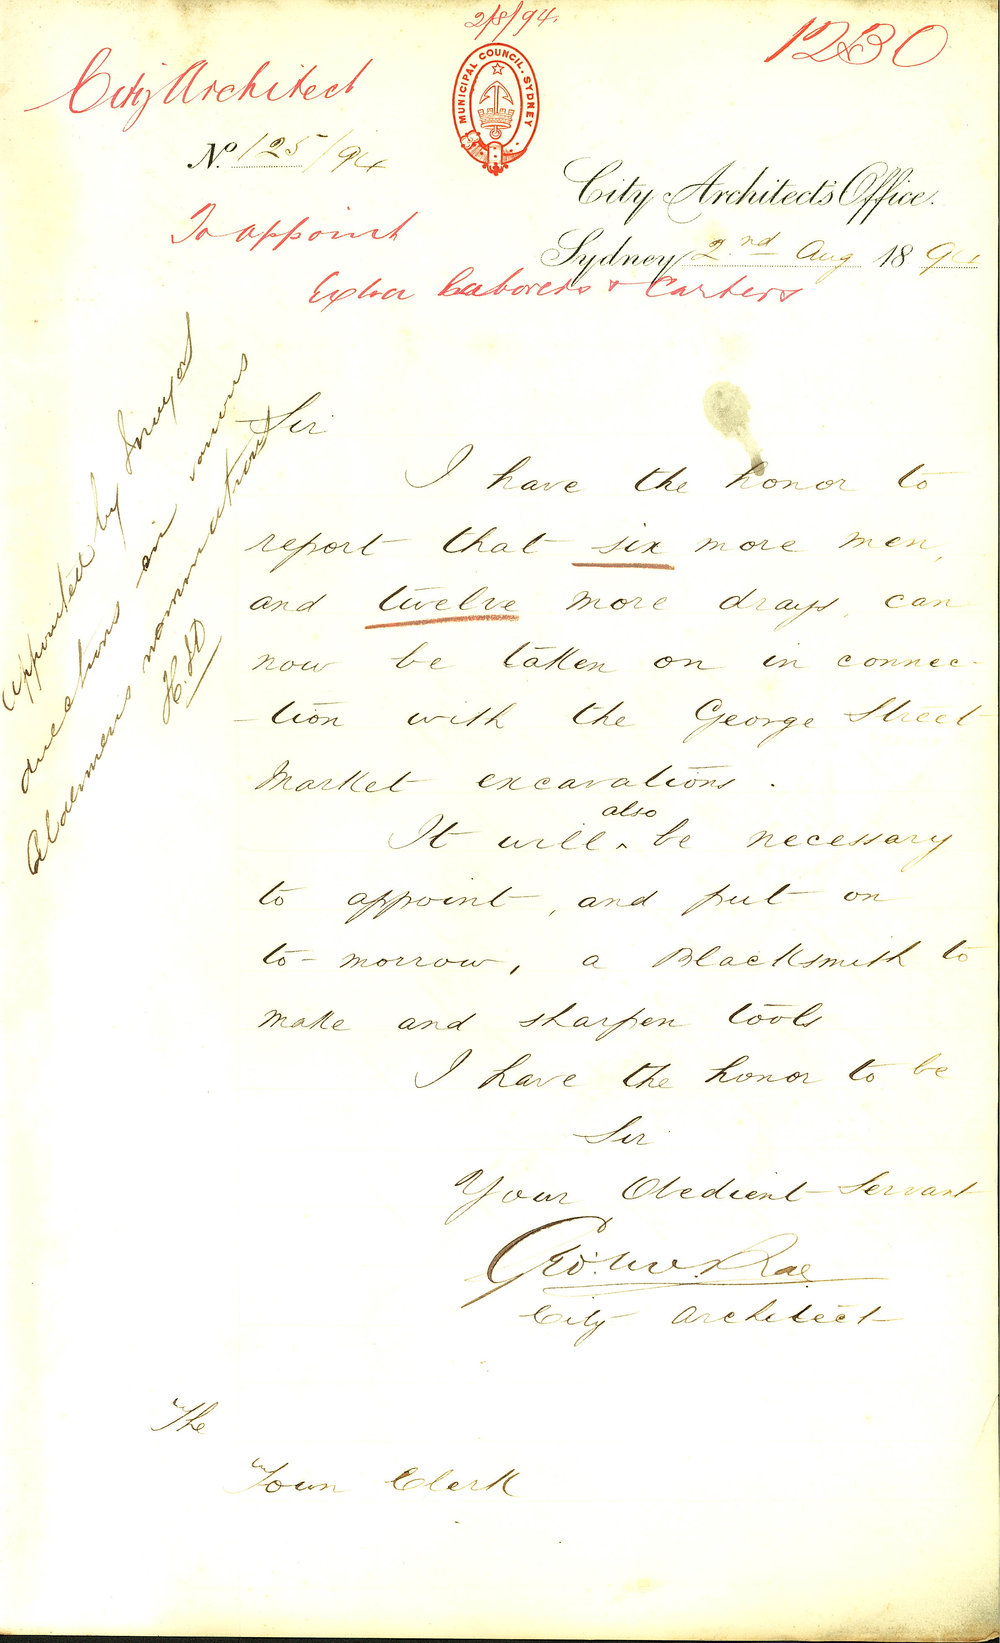 2/8/94.
1230
City Architect
MUNICIPAL COUNCIL. SYDNEY
No. 125/94
City Architect's Office.
To appoint
Sydney 2nd Aug 1894
Extra Laborers & Carters
Appointed by
directions on various
Aldermens nominations
Sir
I have the honor to
report that six more men,
and twelve more drays, can
now be taken on in connec-
-tion with the George Street
Market excavations.
also
It will ^ be necessary
to appoint, and put on
to-morrow, a Blacksmith to
make and sharpen tools
I have the honor to be
Sir
Your Obedient Servant
Geo. W. Rae
City Architect
The
Town Clerk